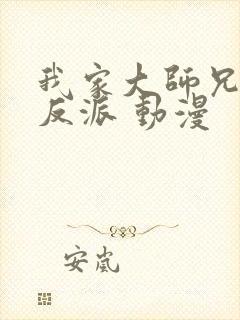 我家大師兄
反派 動漫
安嵐